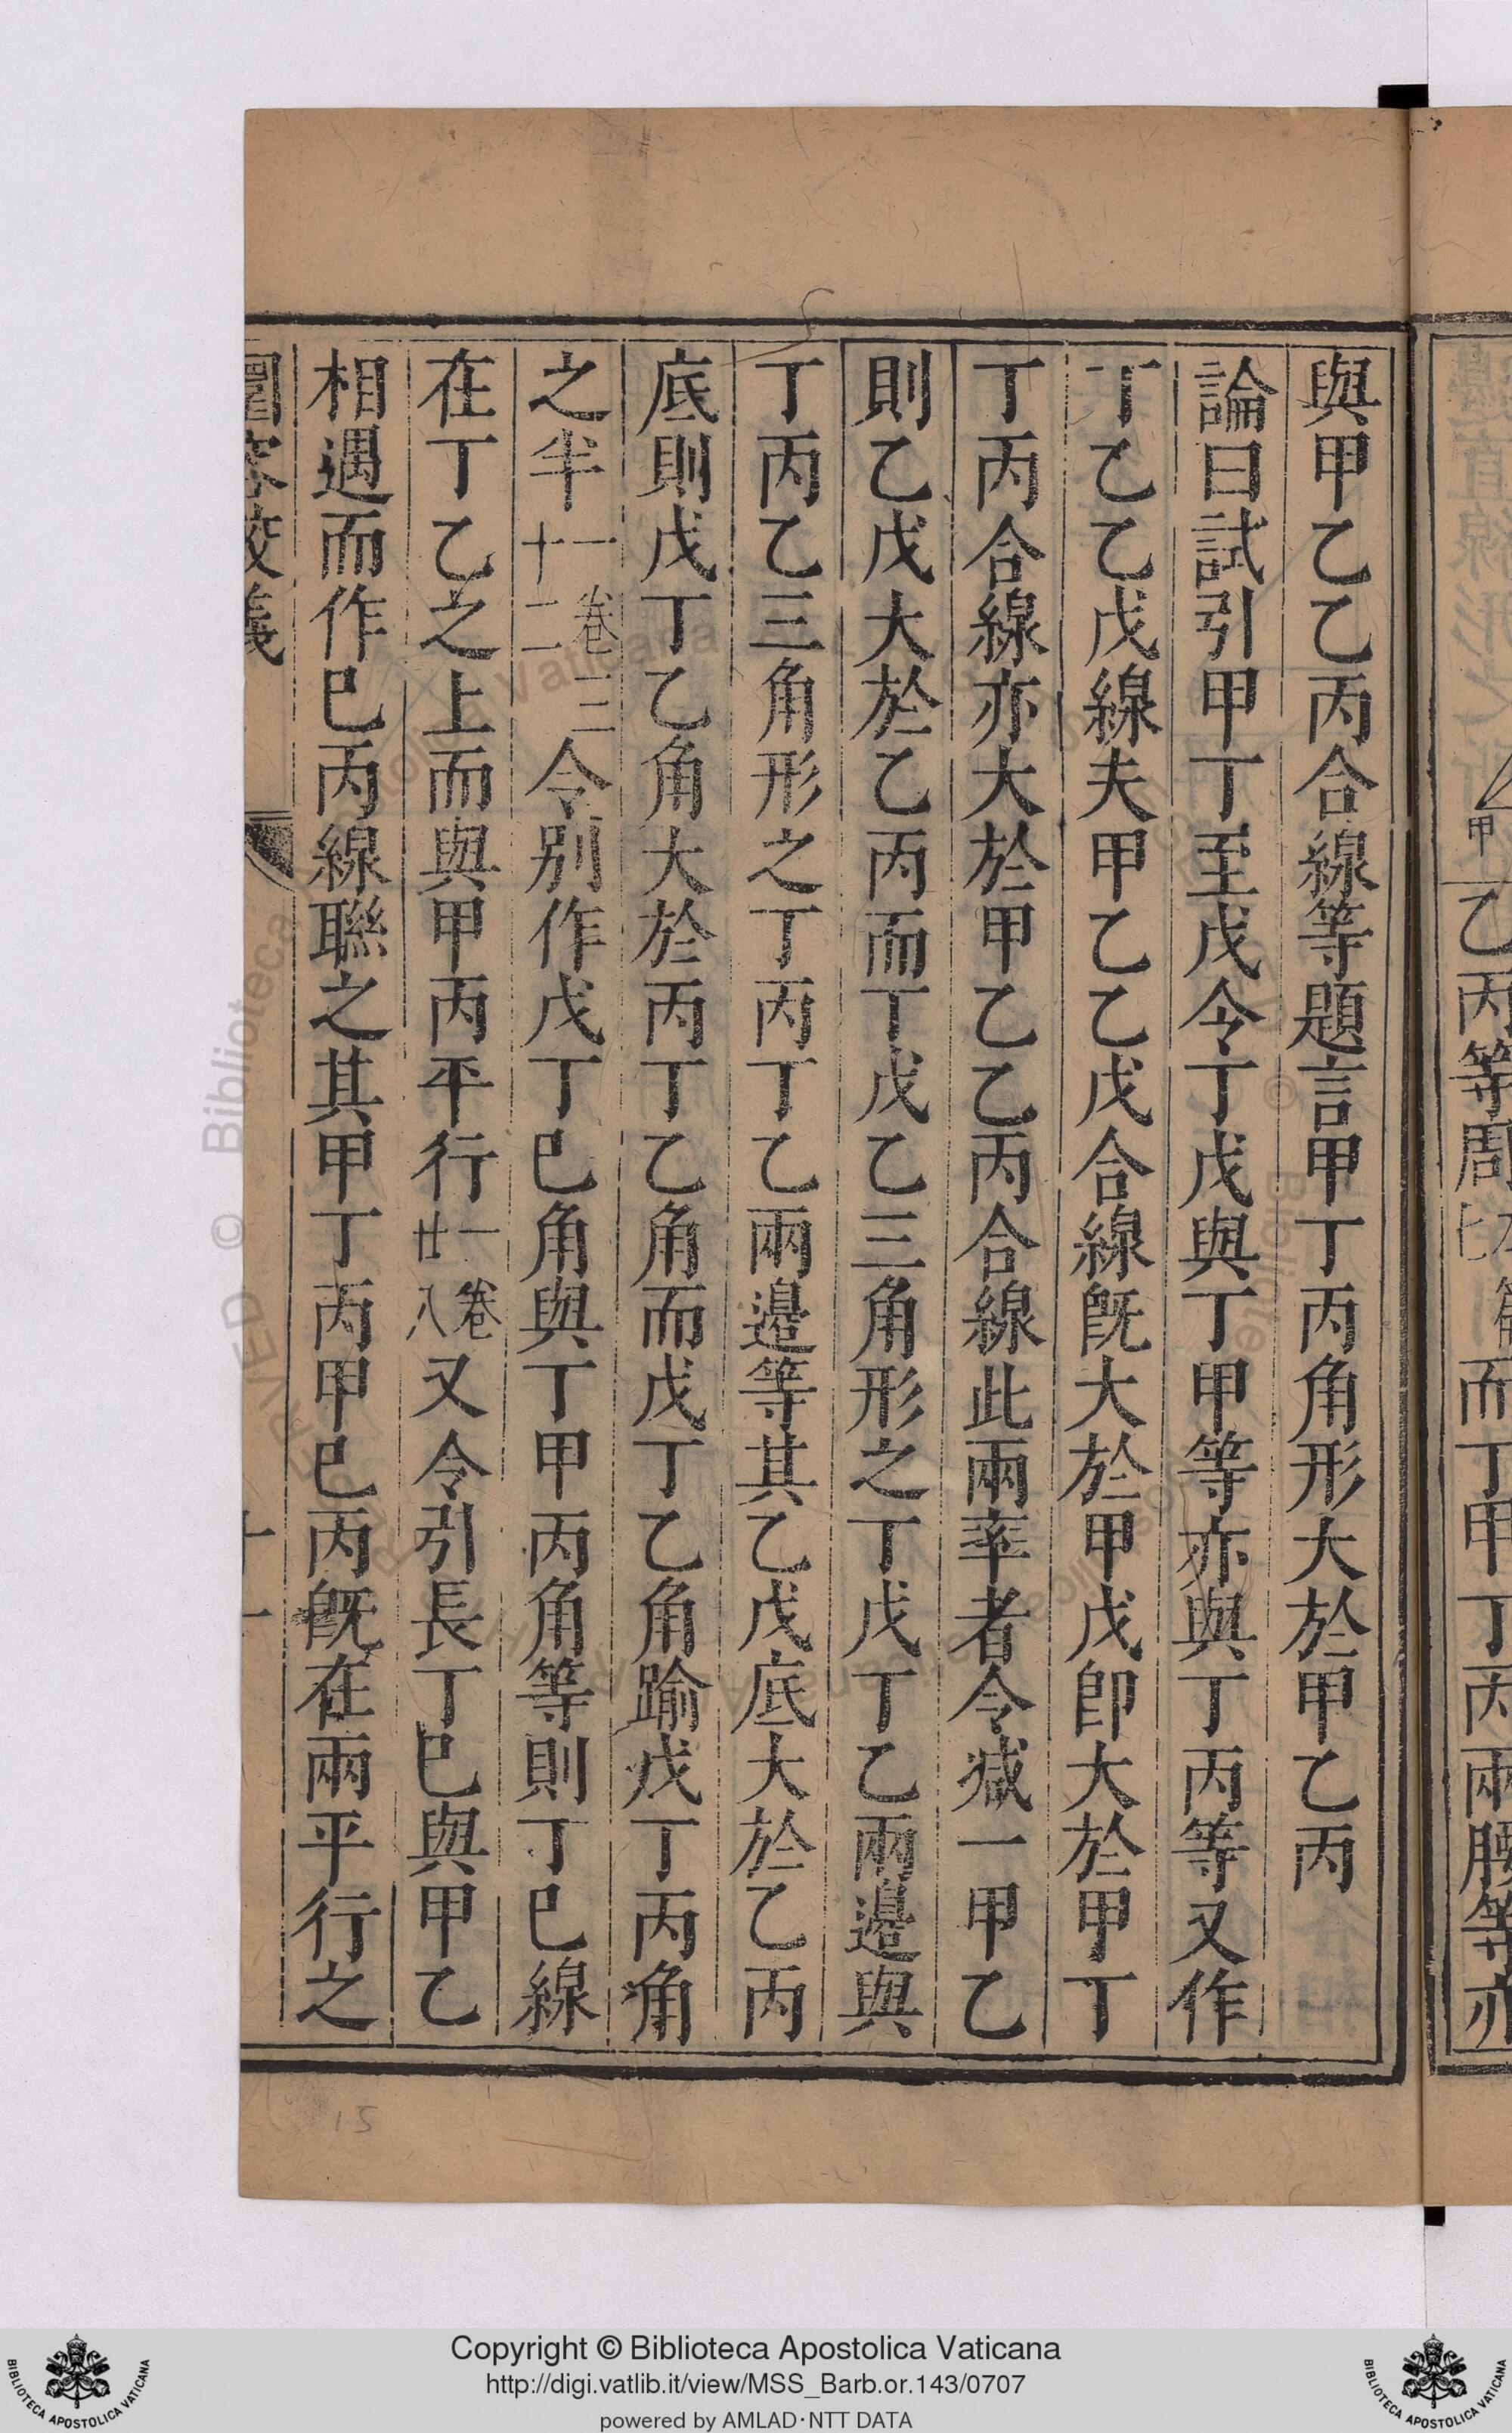 與甲乙乙丙合線等題言甲丁丙角形大於甲乙丙
論曰試引甲丁至戊令丁戊與丁甲等亦與丁丙等又作
丁乙乙戊線夫甲乙乙戊合線旣大於甲戊卽大於甲丁
丁丙合線亦大於甲乙乙丙合線此兩率者令减一甲乙
則乙戊大於乙丙而丁戊乙三角形之丁戊丁乙兩邊與
丁丙乙三角形之丁丙丁乙兩邊等其乙戊底大於乙丙
底則戊丁乙角大於丙丁乙角而戊丁乙角踰戊丁丙角
之半一卷三十二令別作戊丁巳角與丁甲丙角等則丁巳線
在丁乙之上而與甲丙平行一卷廿八又令引長丁巳與甲乙
相遇而作巳丙線聯之其甲丁丙甲巳丙旣在兩平行之
圜容較義
十一
甲
乙丙等周
七
而丁甲丁丙兩腰等亦
15
Copyright © Biblioteca Apostolica Vaticana
http://digi.vatlib.it/view/MSS_Barb.or.143/0707
powered by AMLAD·NTT DATA
BIBLIOTECA APOSTOLICA VATICANA
BIBLIOTECA APOSTOLICA VATICANA